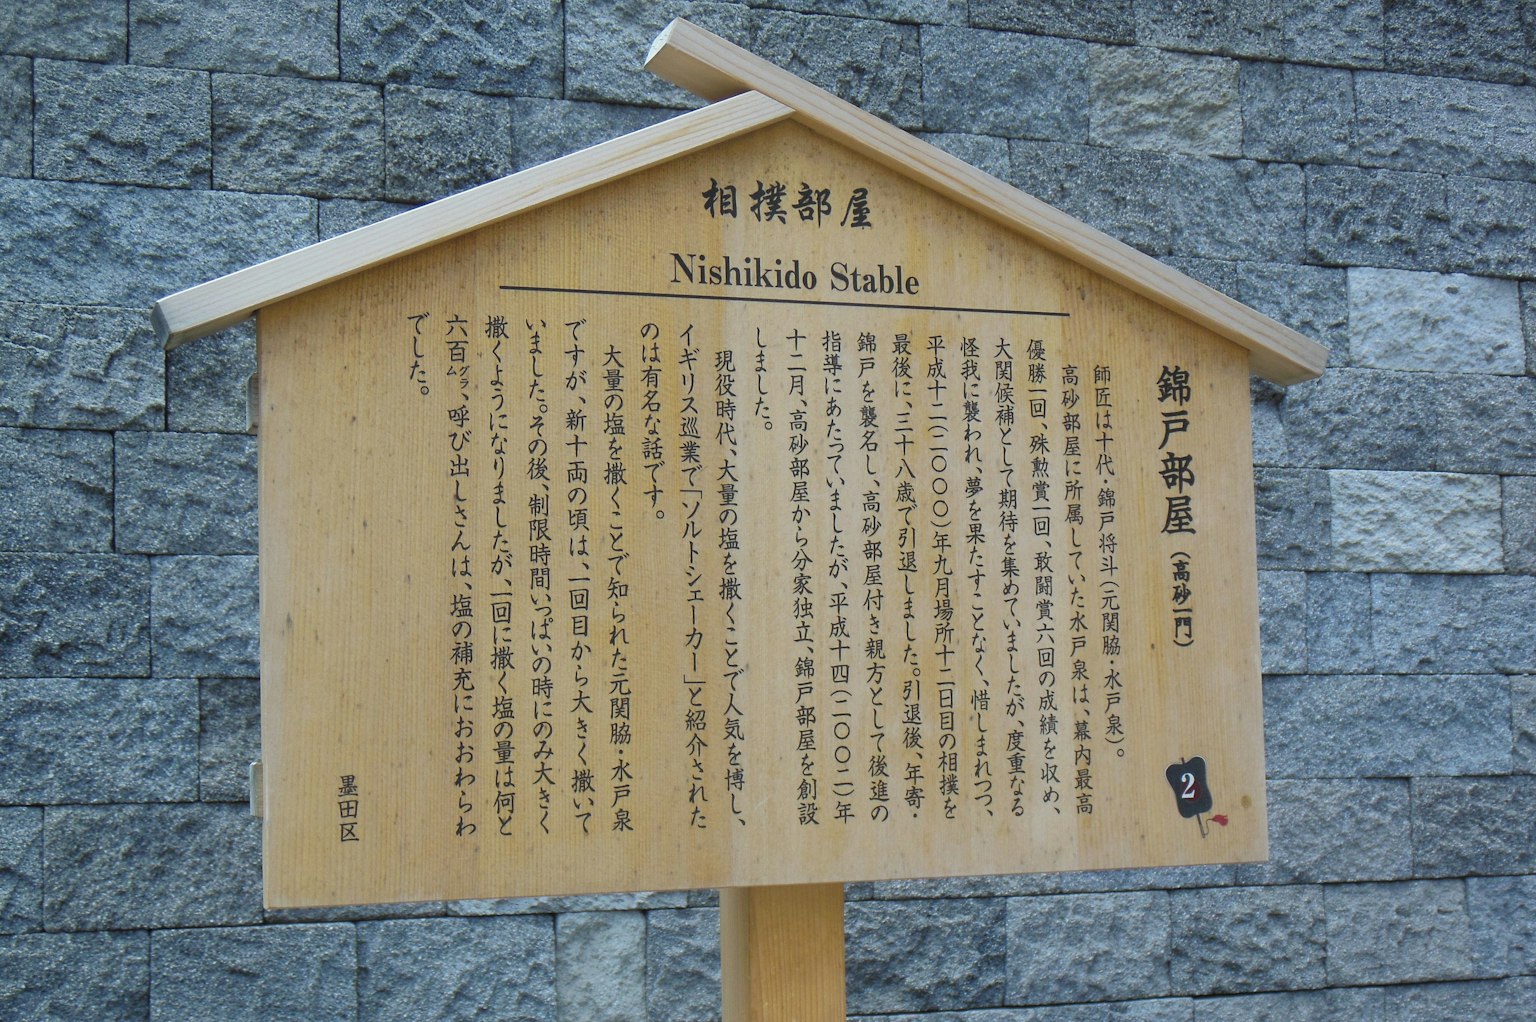 相撲部屋
Nishikido Stable
錦戸部屋（高砂一門）
師匠は十代・錦戸将斗（元関脇・水戸泉）。
高砂部屋に所属していた水戸泉は、幕内最高
優勝一回、殊勲賞一回、敢闘賞六回の成績を収め、
大関候補として期待を集めていましたが、度重なる
怪我に襲われ、夢を果たすことなく、惜しまれつつ、
平成十二（二〇〇〇）年九月場所十二日目の相撲を
最後に、三十八歳で引退しました。引退後、年寄・
錦戸を襲名し、高砂部屋付き親方として後進の
指導にあたっていましたが、平成十四（二〇〇二）年
十二月、高砂部屋から分家独立、錦戸部屋を創設
しました。
現役時代、大量の塩を撒くことで人気を博し、
イギリス巡業で「ソルトシェーカー」と紹介された
のは有名な話です。
大量の塩を撒くことで知られた元関脇・水戸泉
ですが、新十両の頃は、一回目から大きく撒いて
いました。その後、制限時間いっぱいの時にのみ大きく
撒くようになりましたが、一回に撒く塩の量は何と
六百グラム、呼び出しさんは、塩の補充におおわらわ
でした。
墨田区
2